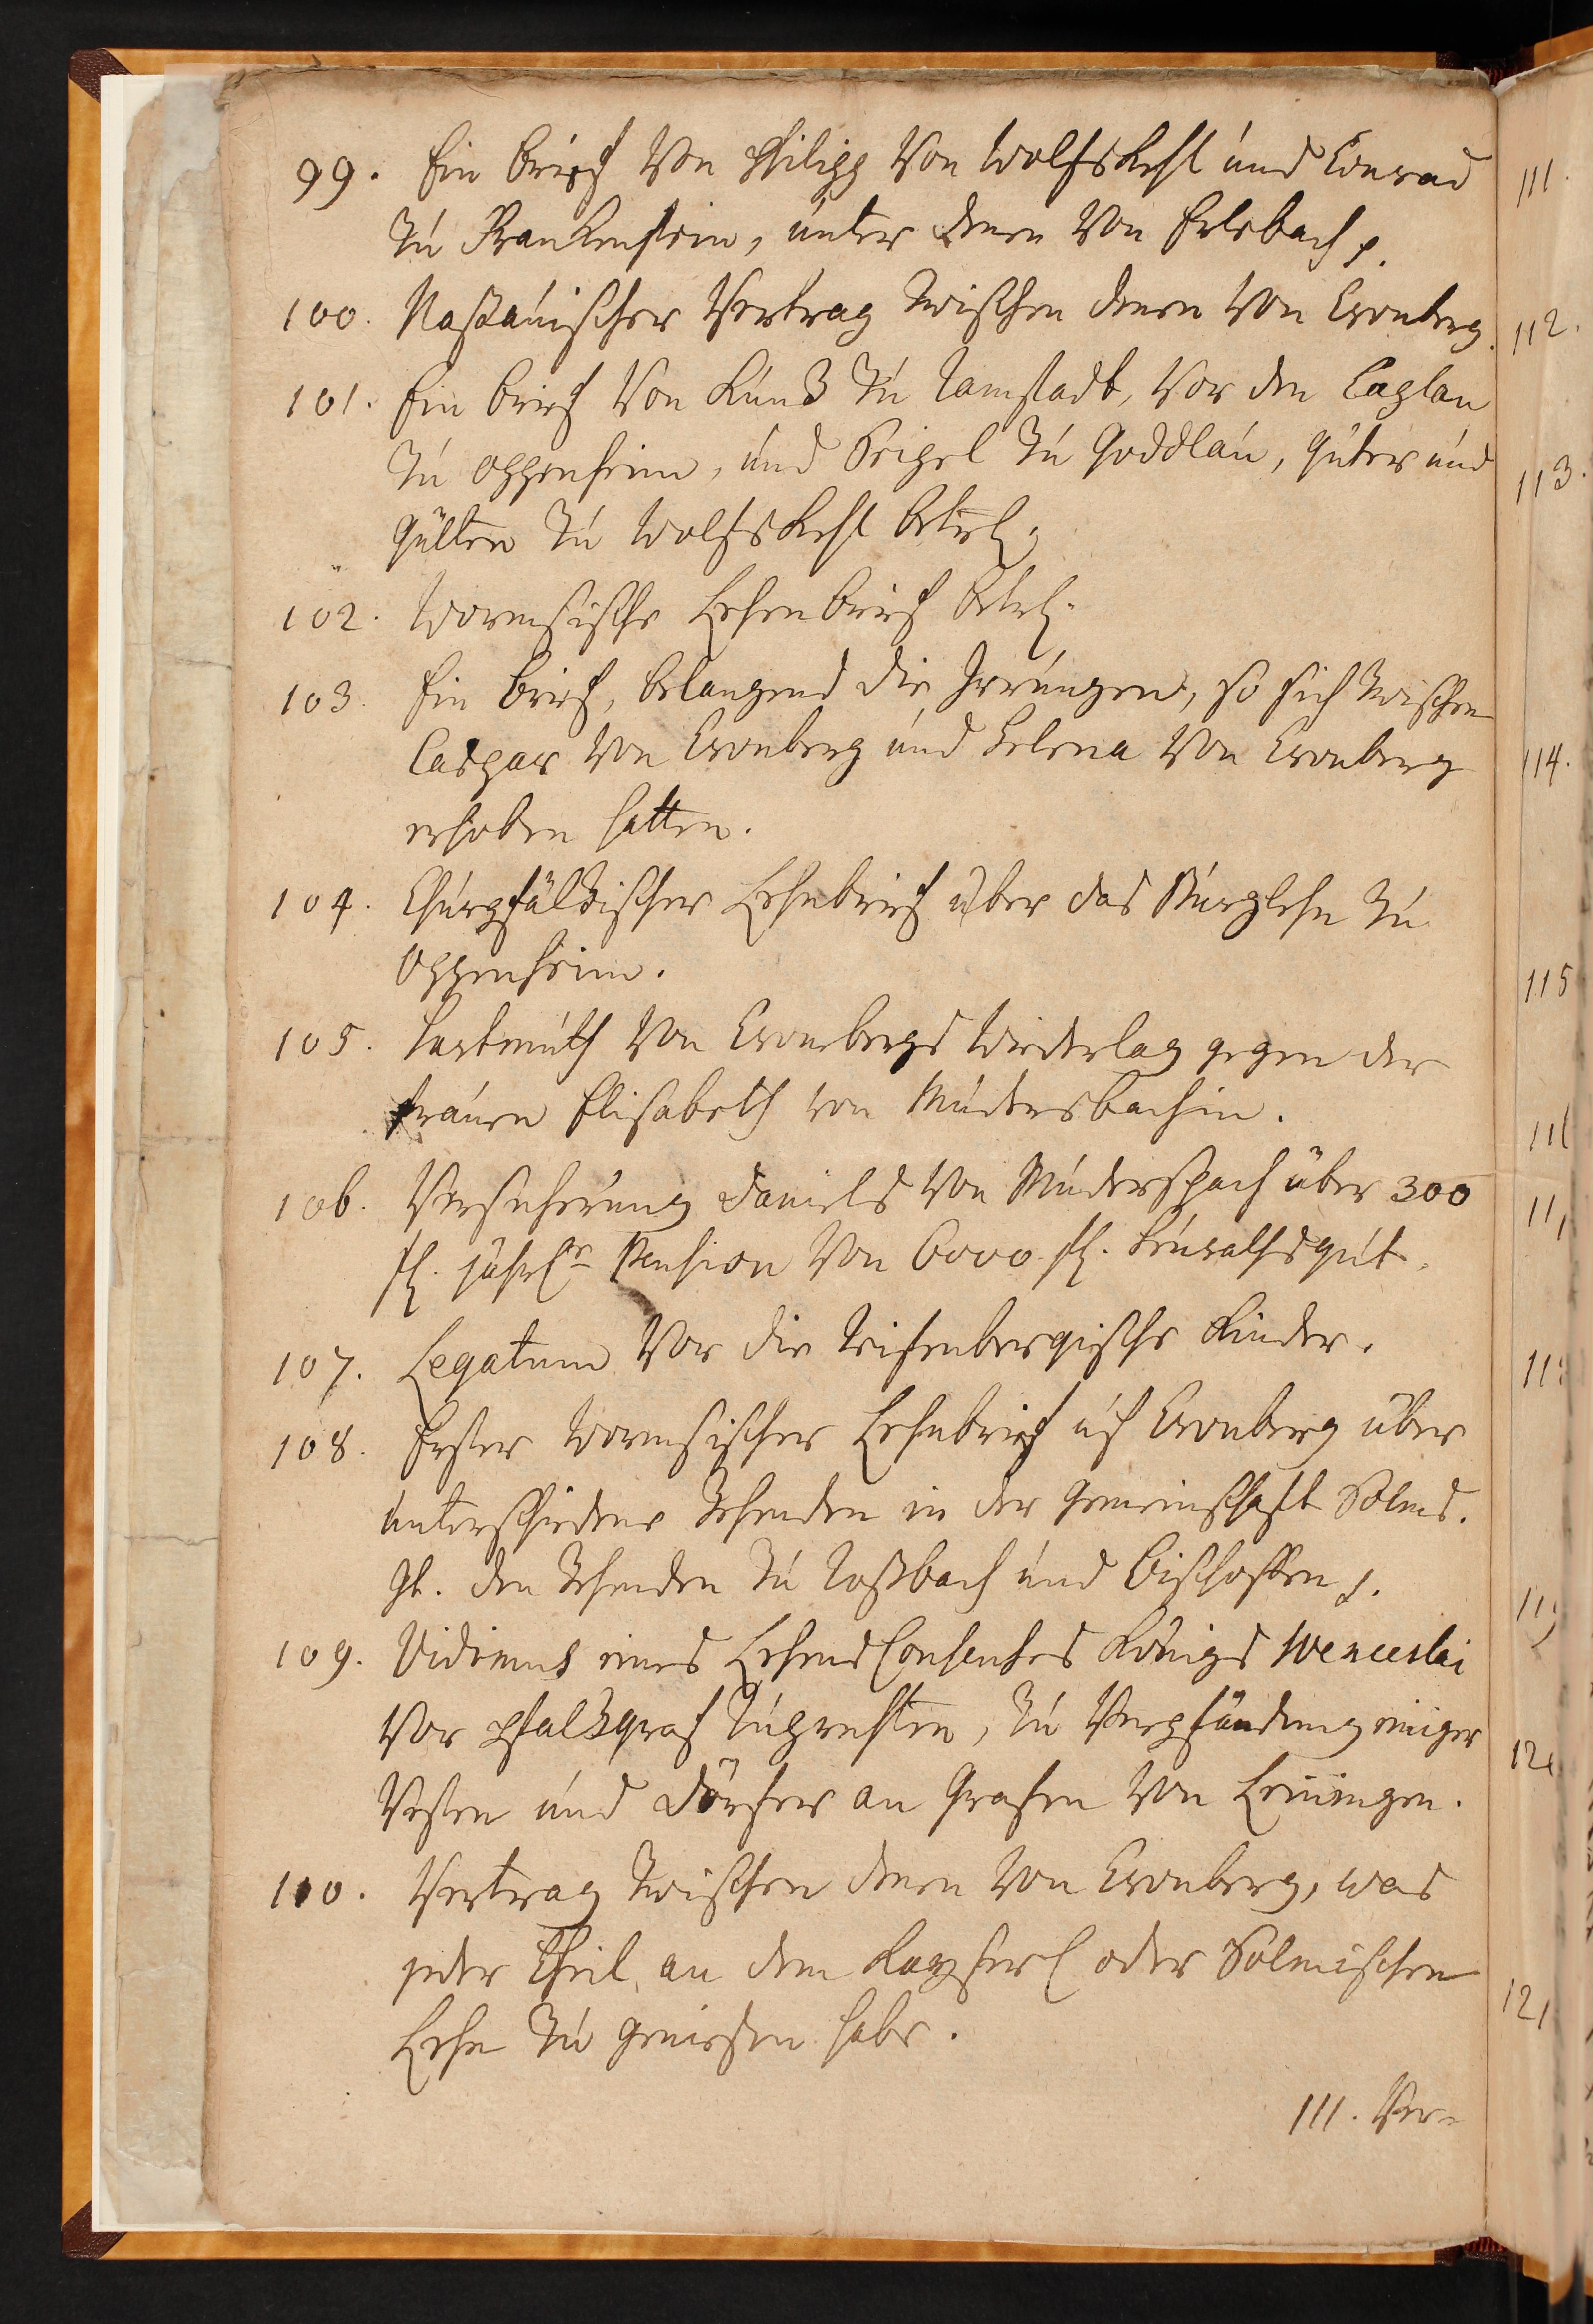 99. Ein brief Von Philipp Von Wolfskehl und Conrad
zu Frankenstein, unter denen Von Erlebach p.
100. Naßauischer Vertrag zwischen denen Von Cronberg.
101. Ein brief Von Kunß zu Ramstadt, Vor den Caplan
zu Oppenheim, und Seigel zu Goddlau, Güter und
Gülten zu Wolfskehl betrl.
102. Wormsische Lehenbrief betrl.
103. Ein brief, belangend die Irrungen, so sich zwischen
Caspar Von Cronberg und Lelena Von Cronberg
erhoben hatten.
104. Churpfältzischer Lehnbrief über das Burglehn zu
Oppenheim.
105. Hartmuth Von Cronbergs Wiederlag gegen der
frauen Elisabeth von Mudersbachin.
106. Versicherung Daniels Von Muderspach über 300
fl. jährlr Pension Von 6000 fl. Heurathsgut.
107. Legatum Vor die Reifenbergische Kinder.
108. Erster Wormsischer Lehnbrief uf Cronberg über
unterschiedene Zehenden in der Gemeinschafft Solms.
Jt. den Zehenden zu Roßbach und Bischoffen p.
109. Vidimus eines Lehens Consenses Königs Wenceslai
Vor Pfaltzgraf Ruprechten, zu Verpfändung einiger
Vesten und Dörfer an Grafen Von Leiningen.
110. Vertrag zwischen denen Von Cronberg, was
jeder Theil an dem Kayserl oder Solmischen
Lehn zu geniesen habe.
111. Ver-
111.
112.
113.
114.
115
121